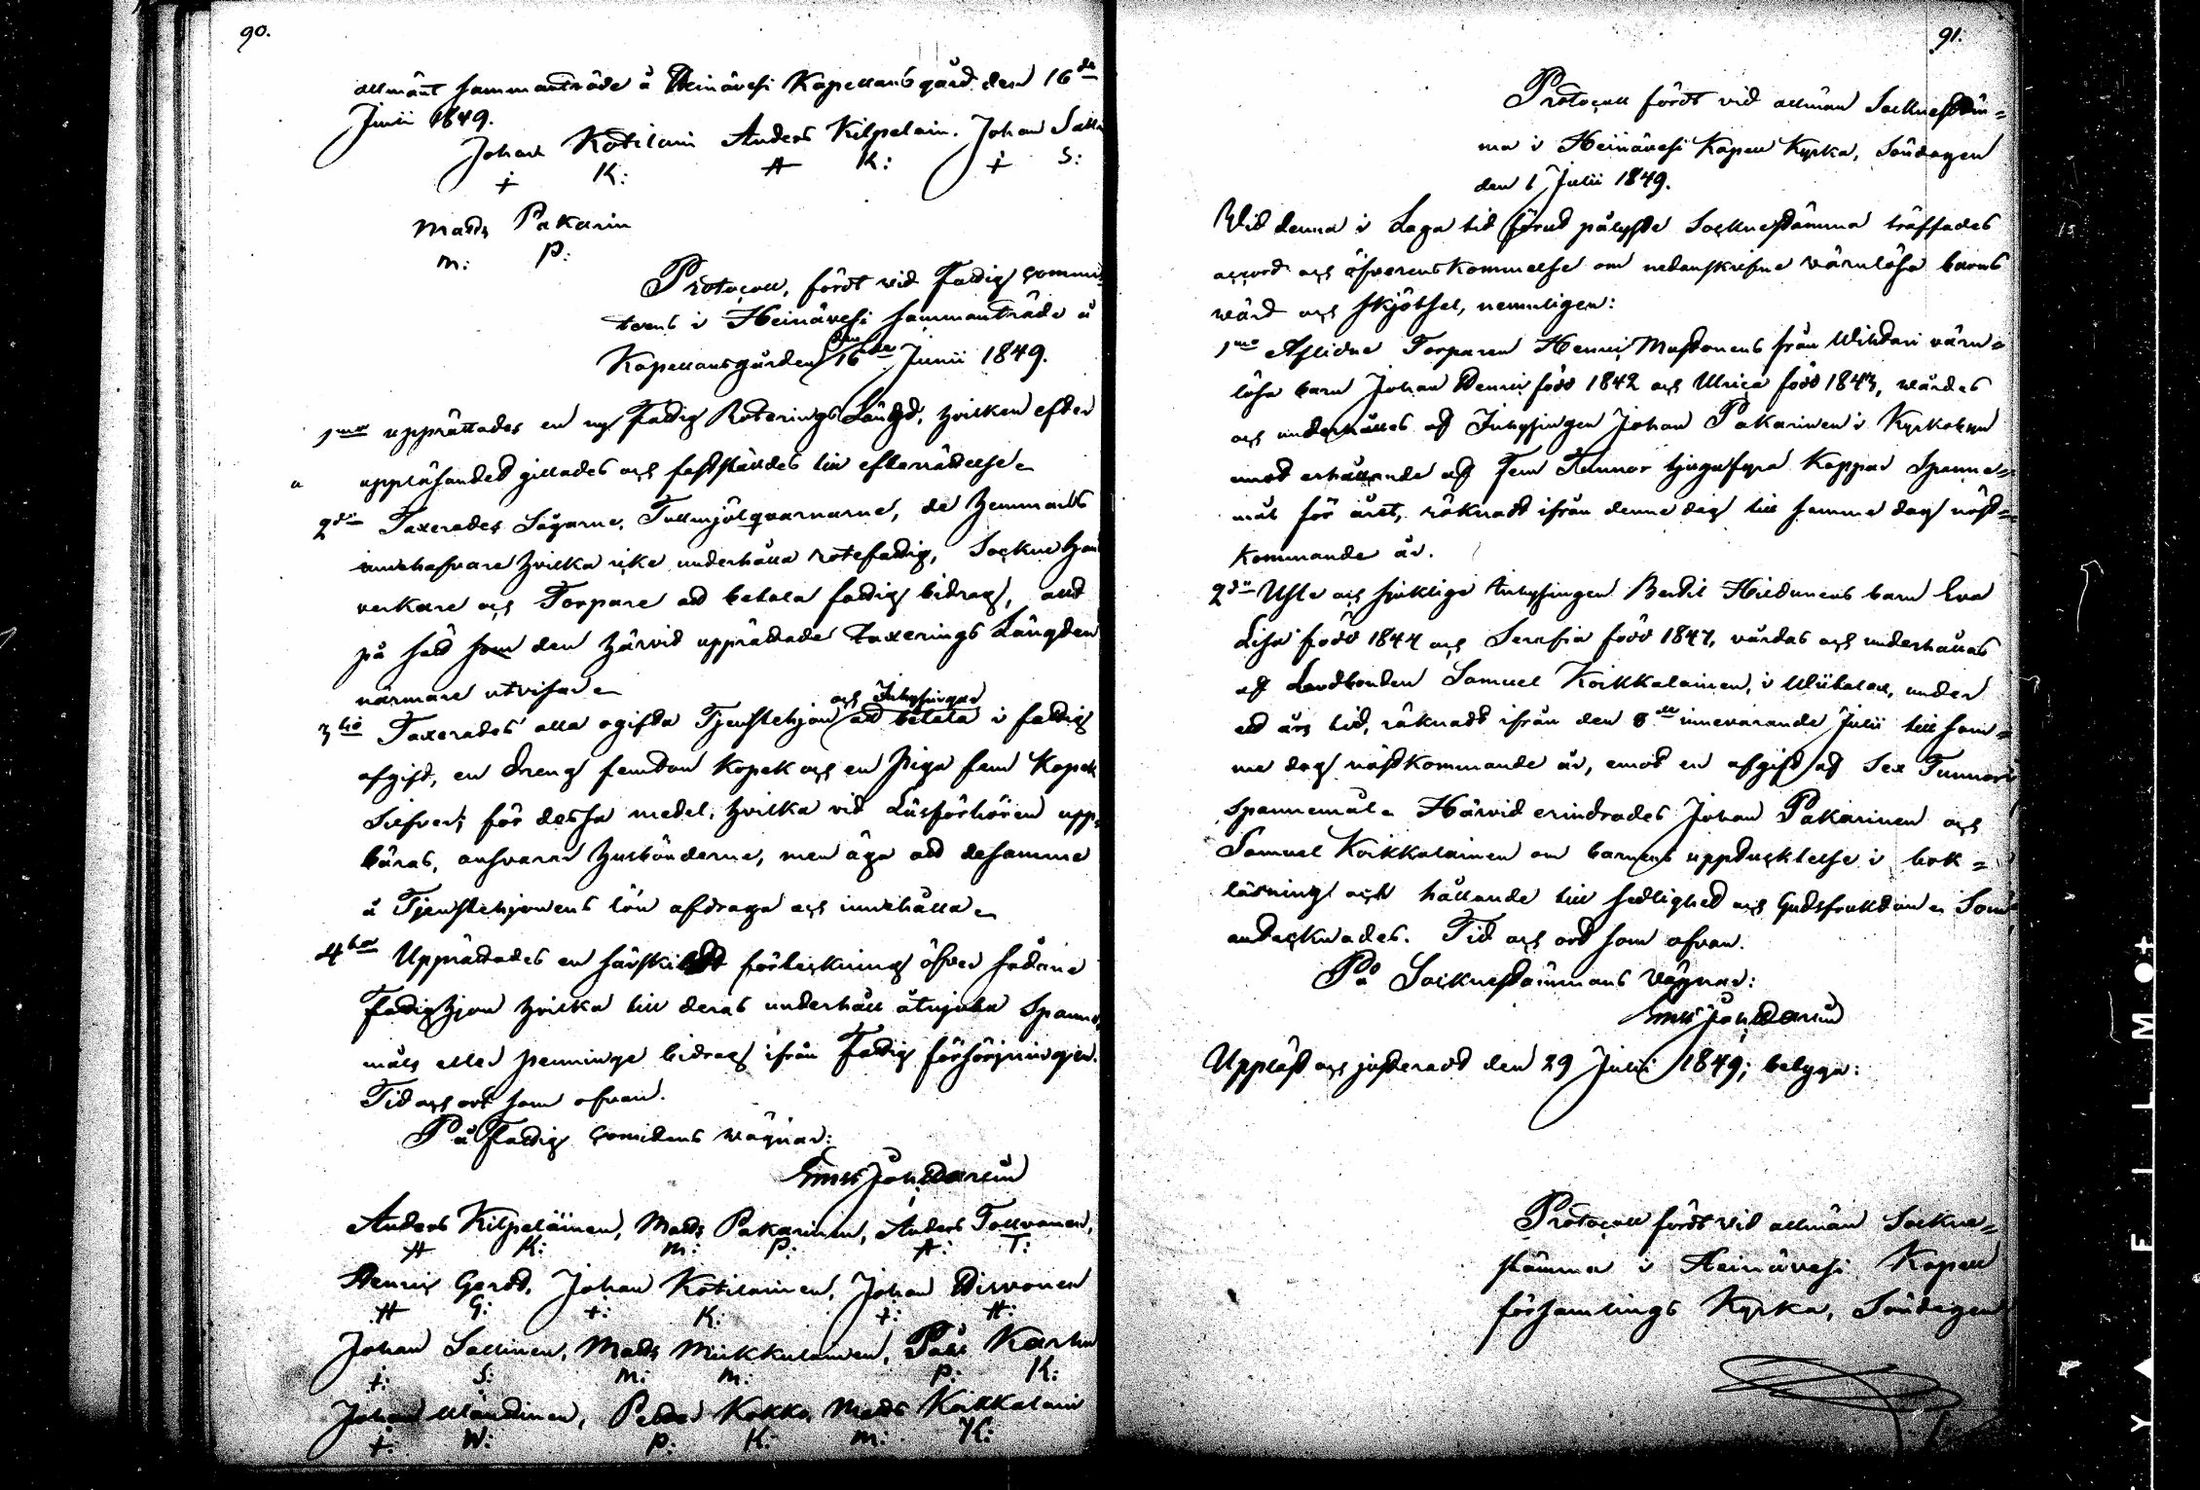 90.
allmänt sammanträde å Heinävesi Kapellans gård den 16de
Junii 1849.
Johan Kotilain Anders Kilpelain. Johan Sallin
+ K: A K: + S:
Mats Pakarin
M: P:
Protocoll, fördt vid Fattig commi-
teens i Heinävesi sammanträde å
Kapellansgården den 16de Junii 1849.
1mo upprättades en ny Fattig Roterings Längd, hvilken efter
uppläsandet gillades och fastställdes till efterrättelse.
2do Taxerades Sågarne, Tullmjölqvarnarne, de Hemmans
innehafvare hvilka icke underhålla rotefattig, Sockne hand
verkare och Torpare att betala fattig bidrag, allt
på sätt som den härvid upprättade taxerings Längden
närmare utvisar.
och Inhysingar
3tio Taxerades alla ogifta Tjenstehjon att betala i fattig
afgift, en dreng femton Kopek och en piga fem Kopek
Silfver; för dessa medel, hvilka vid Läsförhören upp-
bäras, ansvarar husbönderne, men äga att desamma
å Tjenstehjonens lön afdraga och innehålla.
4to Upprättades en särskildt förteckning öfver sådane
Fattighjon hvilka till deras underhåll åtnjuta Spanne-
måls eller penninge bidrag ifrån Fattig försörjningen.
Tid och ort som ofvan.
På Fattig comitens vägnar:
Anders Kilpeläinen, Mats Pakarinen, Anders Tollvanen,
A K: M: P: A: T:
Henric Gerdt, Johan Kotilainen, Johan Hirvonen
H G: +: K: +: H:
Johan Sallinen, Mats Miikkulainen, Påhl Karhu
+: S: M: M: P: K:
Johan Wändinen, Petter Kokko, Mats Koikkalain
+: W: P: K: M: K:
91.
Protocoll fördt vid allmän Socknestäm-
ma i Heinävesi Kapell Kyrka, Söndagen
den 1 Julii 1849.
Vid denna i Laga tid förut pålyste Socknestämma träffades
accord och öfverenskommelse om nedanskrifne värnlösa barns
wård och skjötsel, nemligen:
1mo Aflidne Torparen Henric Mustonens från Wihtari värn-
lösa barn Johan Henric född 1842 och Ulrica född 1843, wårdes
och underhålles af Inhysingen Johan Pakarinen i Kyrkobyn
emot erhållande af Fem Tunnor tjugufyra Kappar Spanne-
mål för året, räknadt ifrån denne dag till samme dag näst-
kommande år.
2do Usle och sjuklige Inhysingen Bertil Hildunens barn Eva
Lisa född 1844 och Serafia född 1847, vårdas och underhållas
af Landbonden Samuel Koikkalainen, i under
ett års tid, räknadt ifrån den 8de innevarande Julii till sam-
me dag nästkommande år, emot en afgift af Sex Tunnor
Spannemål. Härvid erindrades Johan Pakarinen och
Samuel Koikkalainen om barnens uppfostran i bok-
läsning och hållande till sedlighet och Gudsfruktan. Som
antecknades. Tid och ort som ofvan.
På Socknestämmans Vägnar:
Uppläst och justeradt den 29 Julii 1849; betyga:
Protocoll fördt vid allmän Sockne-
stämma i Heinävesi Kapell
församlings Kyrka, Söndagen
FILM